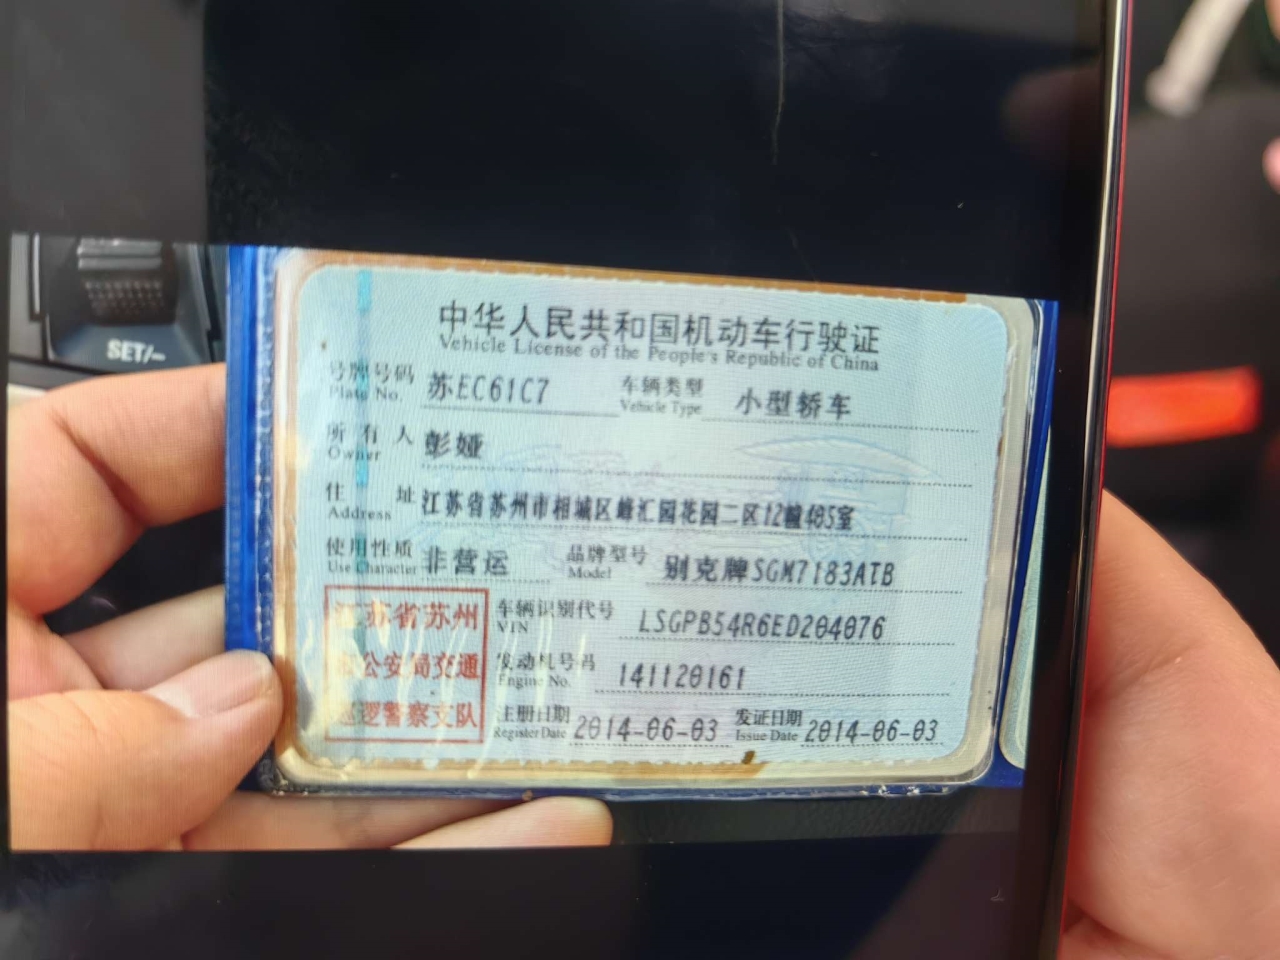 SET/-
中华人民共和国机动车行驶证
Vehicle License of the People's Republic of China
号牌号码 苏EC61C7 车辆类型 小型轿车
Plate No. Vehicle Type
所有人 彭娅
Owner
住址 江苏省苏州市相城区蜂汇园花园二区12幢405室
Address
使用性质 非营运 品牌型号 别克牌SGM7183ATB
Use Character Model
江苏省苏州 车辆识别代号 LSGPB54R6ED204076
VIN
公安局交通 发动机号码 141120161
Engine No.
巡逻警察支队 注册日期 2014-06-03 发证日期 2014-06-03
Register Date Issue Date